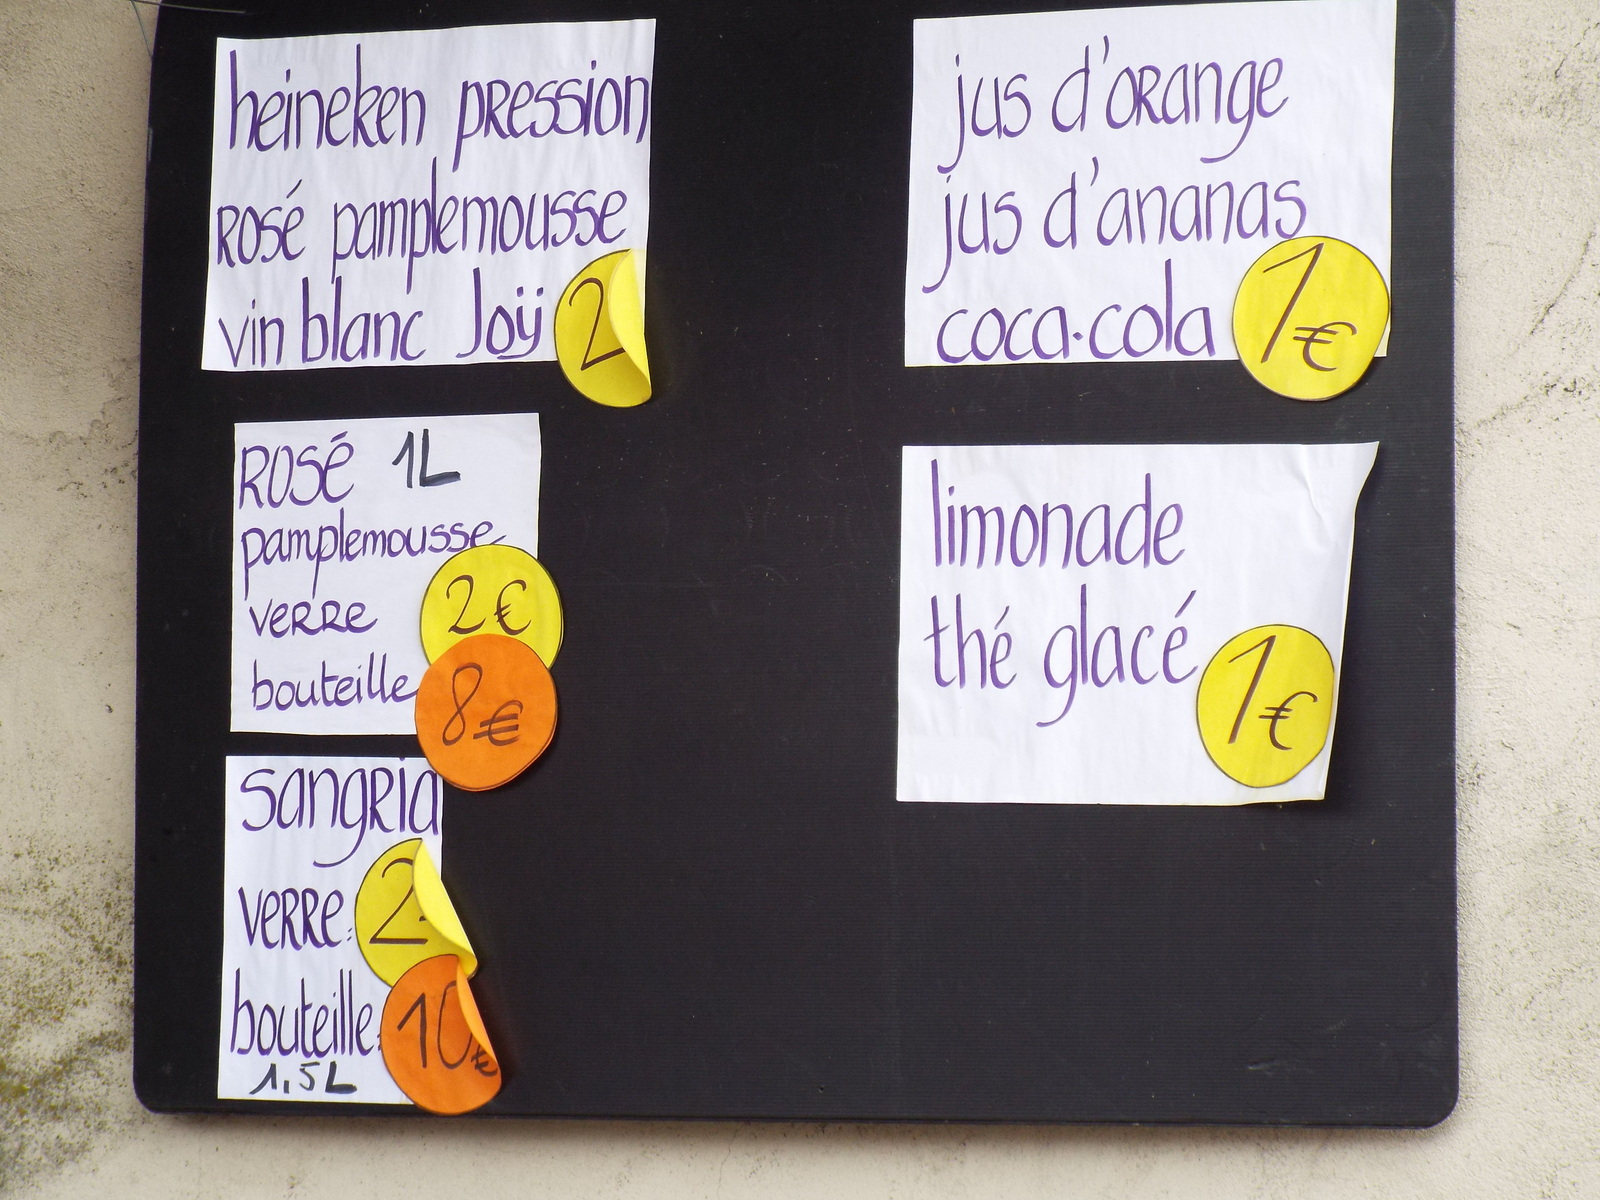 heineken pression
rosé pamplemousse
vin blanc Joÿ 2
rosé 1L
pamplemousse
verre 2€
bouteille 8€
sangria
verre: 2
bouteille: 10€
1,5L
jus d'orange
jus d'ananas
coca-cola 1€
limonade
thé glacé 1€